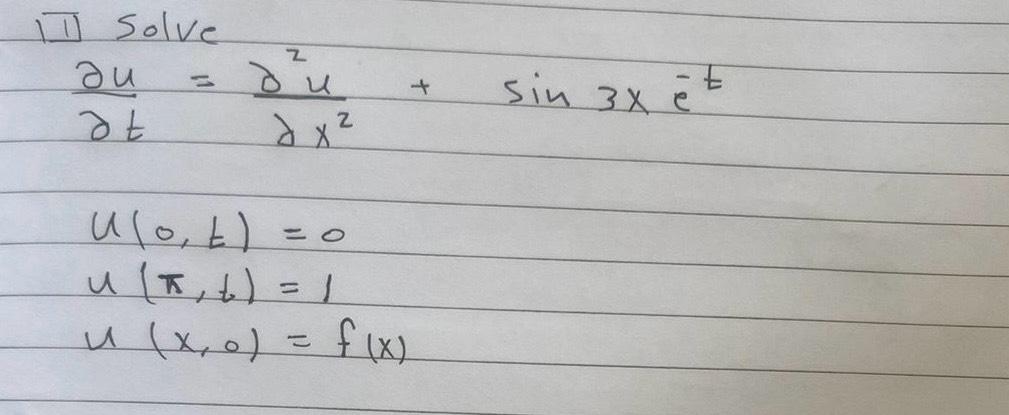 1 Solve
∂u/∂t = ∂²u/∂x² + sin 3x e^-t
u(0,t) = 0
u(π,t) = 1
u(x,0) = f(x)